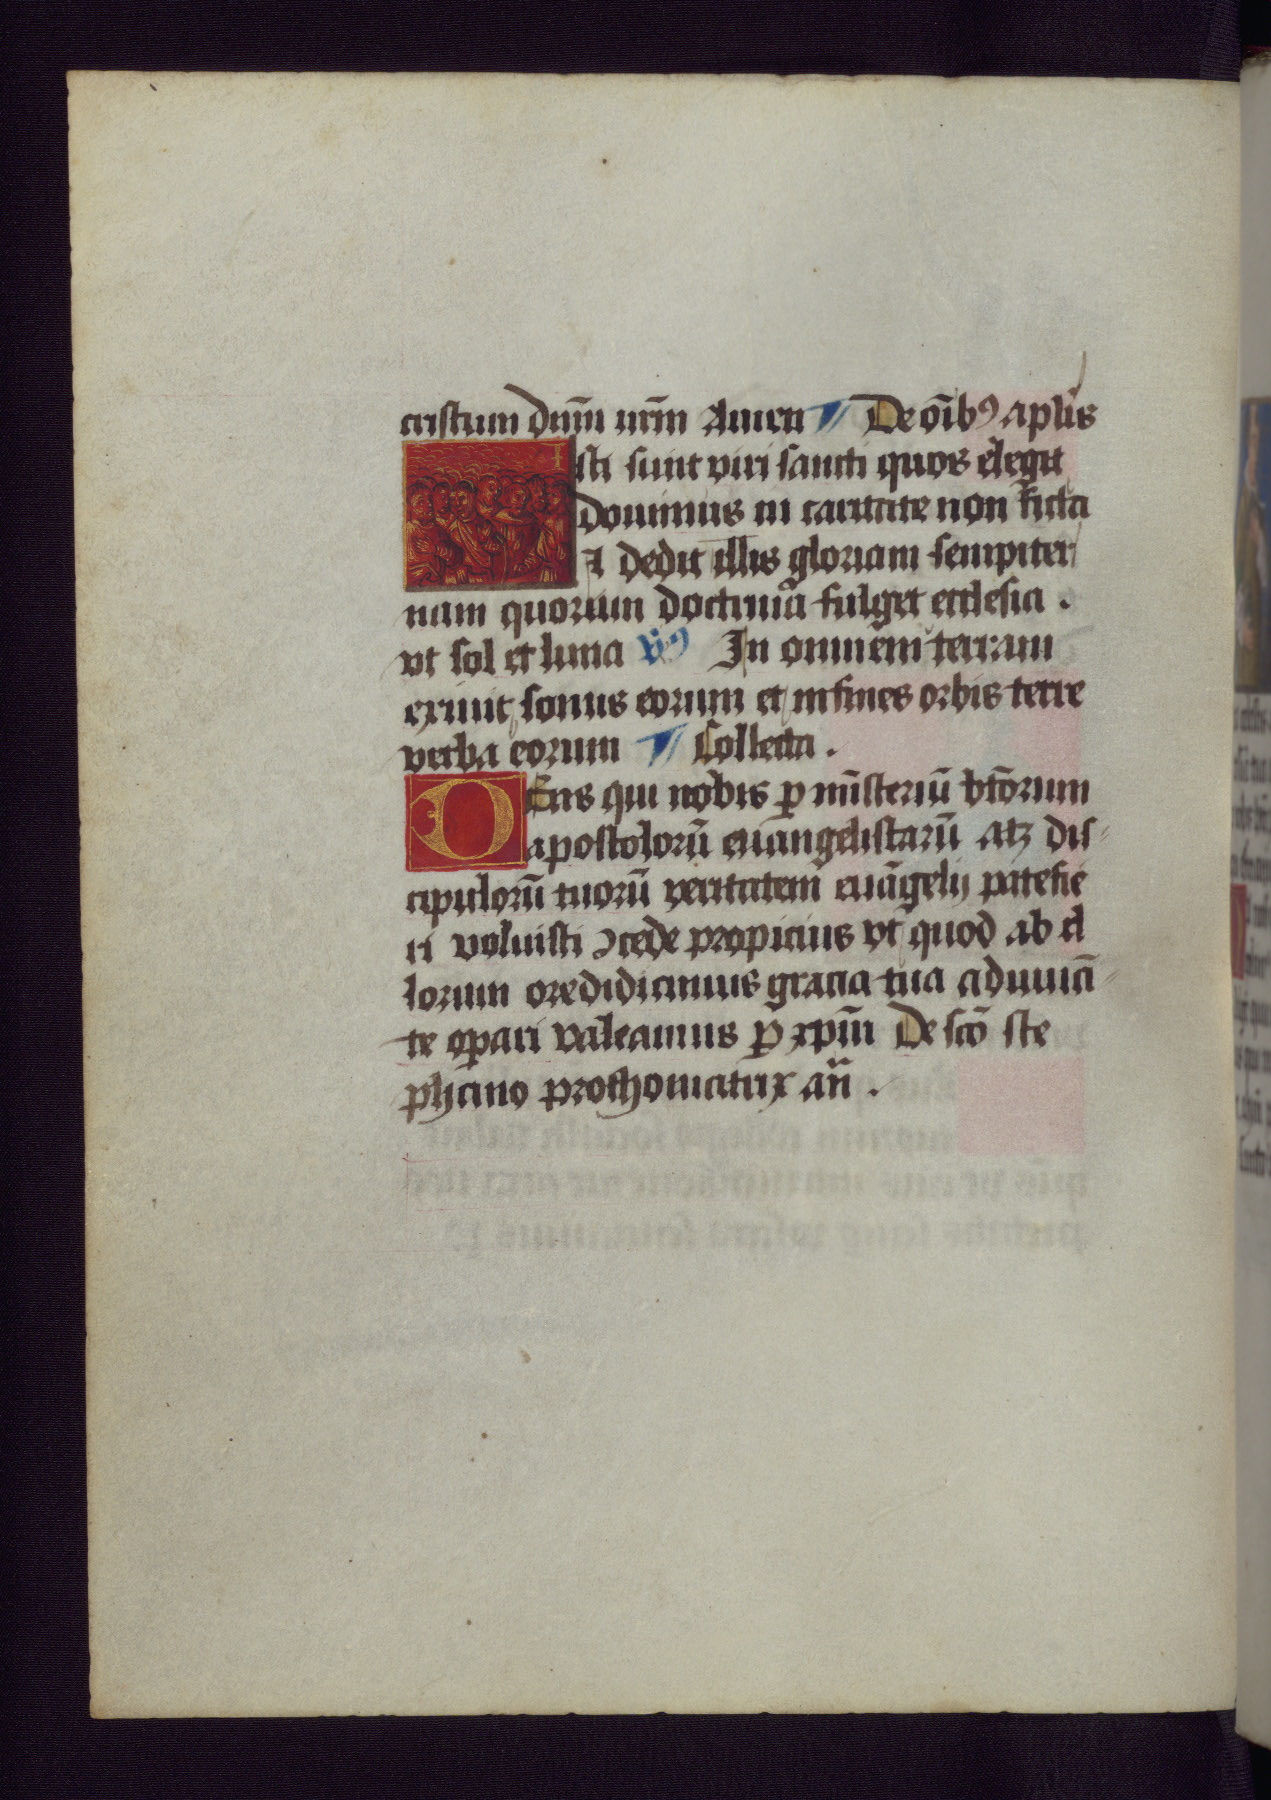 cristum dn̄m nr̄m Amen De oīb⁹ aplīs
Isti sunt viri sancti quos elegit
dominus in caritate non ficta
⁊ dedit illis gloriam sempiter
nam quorum doctrina fulget ecclesia .
vt sol et luna v⁹ In omnem terram
exiuit sonus eorum et in fines orbis terre
verba eorum Collecta .
DEus qui nobis ꝑ mīsteriū btōrum
apostolorū euangelistarū atꝫ dis-
cipulorū tuorū veritatem euāgelij patefie
ri voluisti ↄcede propicius vt quod ab il
lorum ore didicimus gracia tua adiuuā-
te oꝑari valeamus ꝑ xpm̄ De scō ste
phano prothomatirx an̄ .